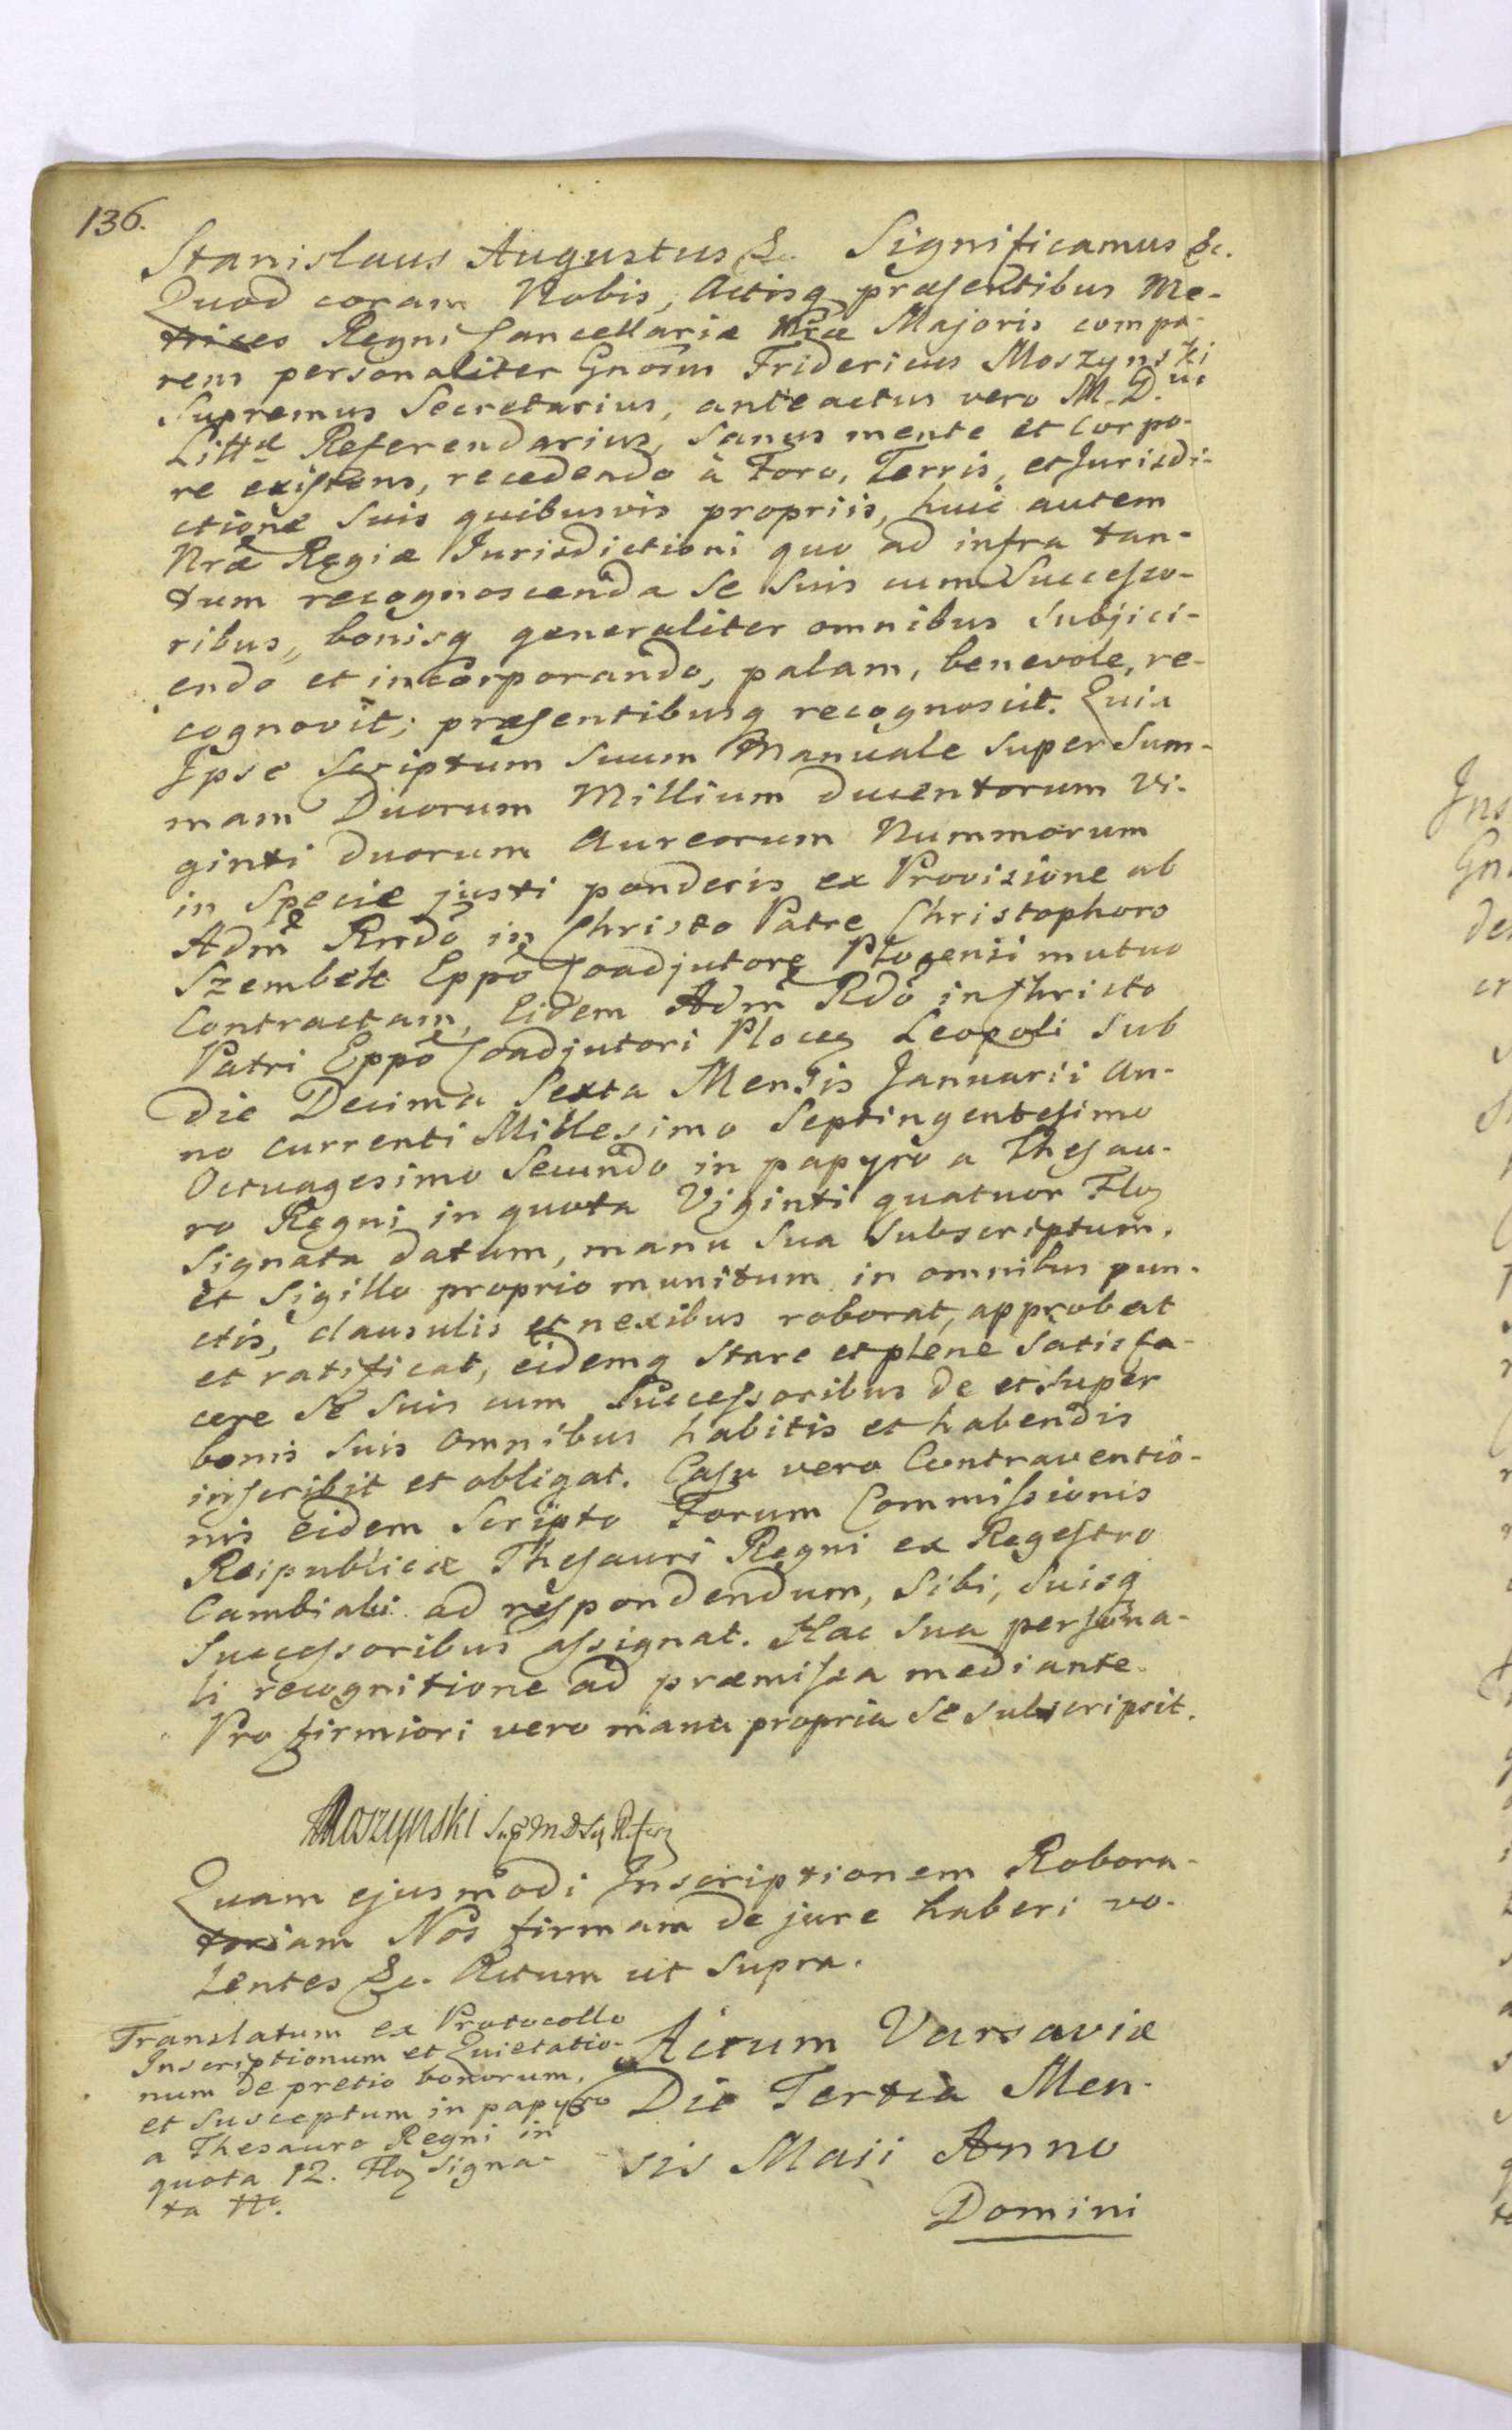 136.
Stanislaus Augustus &c. Significamus &c.
Quod coram Nobis, Actisq præsentibus Me-
trices Regni Cancellariæ Nræ Majoris compa-
rens personaliter Gnosus Fridericus Moszynski
Supremus Secretarius, anteactus vero M. D. uc
Littæ Referendarius, Sanus mente et Corpo-
re existens, recedendo à Foro, Terris, et Jurisdi-
ctione Suis quibusvis propriis, huic autem
Nræ Regiæ Jurisdictioni quo ad infra tan-
tum recognoscenda Se Suis cum Successo-
ribus, bonisq generaliter omnibus Subjici-
endo et incorporando, palam, benevole, re-
cognovit; præsentibusq recognoscit. Quia
Ipse Scriptum Suum Manuale Super Sum-
mam Duorum Millium ducentorum Vi-
ginti duorum Aureorum Nummorum
in Specie justi ponderis ex Provisione ab
Adm Rndo in Christo Patre Christophoro
Szembek Eppo Coadjutore Plocensi mutuo
Contractam, Eidem Adm Rdo in Christo
Patri Eppo Coadjutori Plocen Leopoli Sub
die Decima Sexta Mensis Januarii An-
no currenti Millesimo Septingentesimo
Octuagesimo Secundo in papyro a Thesau-
ro Regni in quota Viginti quatuor Flo
Signata datum, manu Sua Subscriptum,
et Sigillo proprio munitum in omnibus pun-
ctis, clausulis et nexibus roborat, approbat
et ratificat, eidemq Stare et plene Satisfa-
cere Se Suis cum Successoribus de et Super
bonis Suis Omnibus habitis et habendis
inscribit et obligat. Casu vero Contraventio-
nis eidem Scripto Forum Commissionis
Reipublicæ Thesauri Regni ex Regestro
Cambiali ad respondendum, Sibi, Suisq
Successoribus assignat. Hac Sua persona-
li recognitione ad præmissa mediante.
Pro firmiori vero manu propria Se subscripsit.
Moszynski
Quam ejusmodi Inscriptionem Robora-
toriam Nos firmam de jure haberi vo-
lentes &c. Actum ut Supra.
Translatum ex Protocollo
Inscriptionum et Quietatio-
num de pretio bonorum,
et Susceptum in papyro
a Thesauro Regni in
quota 12. Flo Signa-
ta
Actum Varsaviæ
Die Tertia Men-
sis Maji Anno
Domini